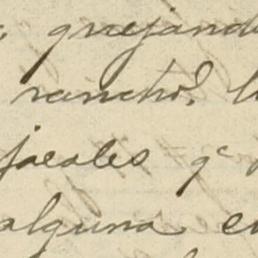 quejand
rancho, l
jacales qe
alguna e